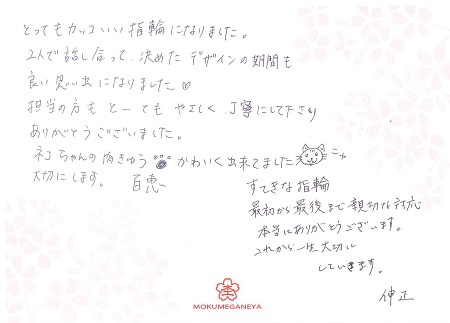 とってもカッコいい指輪になりました。
2人で話し合って、決めたデザインの期間も
良い思い出になりました♡
担当の方もとーってもやさしく、丁寧にして下さり
ありがとうございました。
ネコちゃんの肉きゅう かわいく出来てました ニャ
大切にします。 百恵
すてきな指輪
最初から最後まで親切な対応
本当にありがとうございます。
これから一生大切に
していきます。
伸正
MOKUMEGANEYA